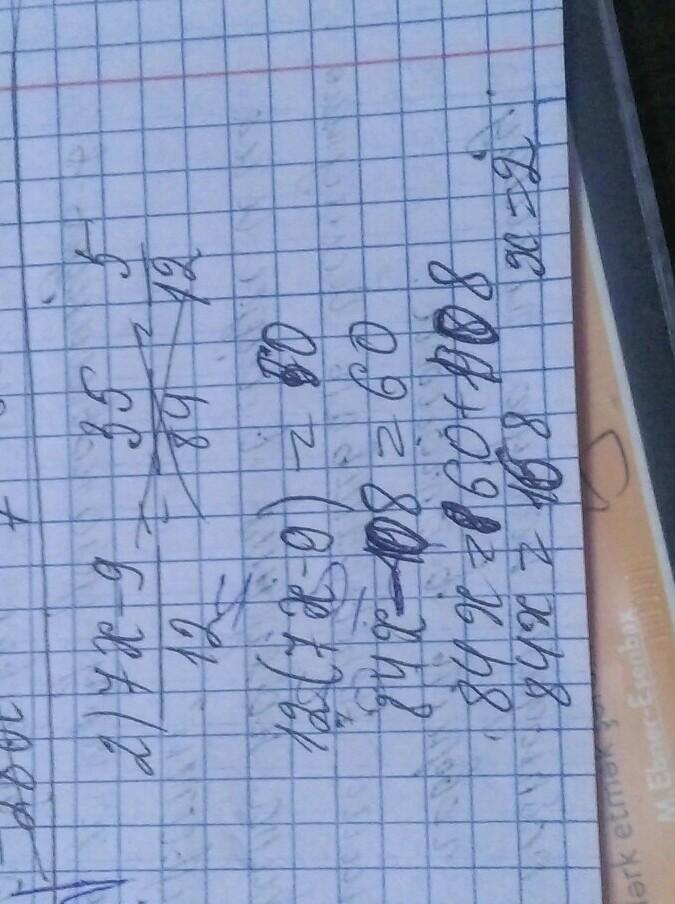 2) 7x-9/12 = 35/84 = 5/12
12(7x-9) = 60
84x-108 = 60
84x = 60+108
84x = 168 x=2
M.Ebner-Esenbax